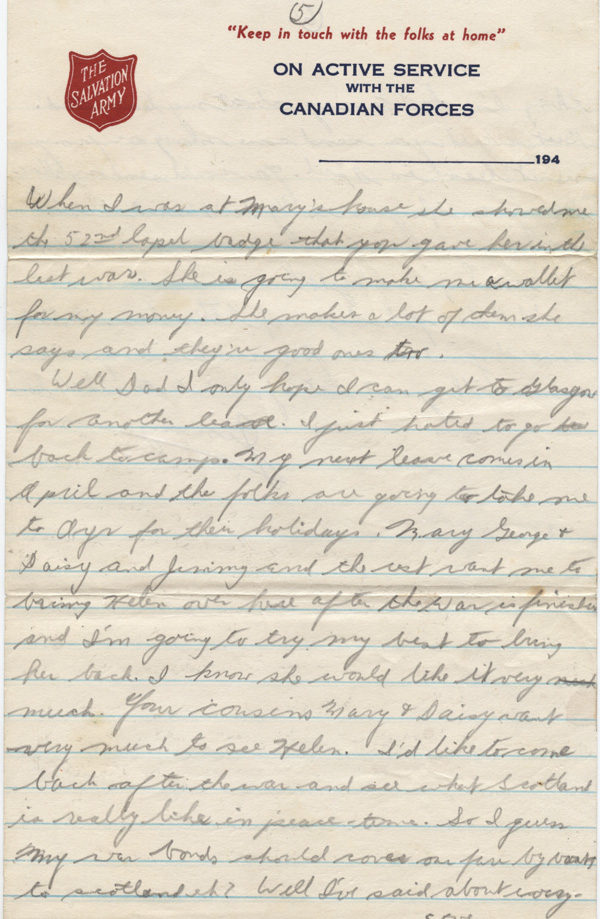 5
"Keep in touch with the folks at home"
THE
SALVATION
ARMY
ON ACTIVE SERVICE
WITH THE
CANADIAN FORCES
194
When I was at Mary's house she showed me
the 52nd lapel badge that you gave her in the
last war. She is going to make me a wallet
for my money. She makes a lot of them she
says and they're good ones too.
Well Dad I only hope I can get to Glasgow
for another leave. I just hated to go
back to camp. My next leave comes in
April and the folks are going to take me
to Ayr for their holidays. Mary George &
Daisy and Jimmy and the rest want me to
bring Helen over here after the war is finished
and I'm going to try my best to bring
her back. I know she would like it very much
much. Your cousins Mary & Daisy want
very much to see Helen. I'd like to come
back after the war and see what Scotland
is really like in peace-time. So I guess
my war bonds should cover our fare by
to scotland eh? Well I've said about every-